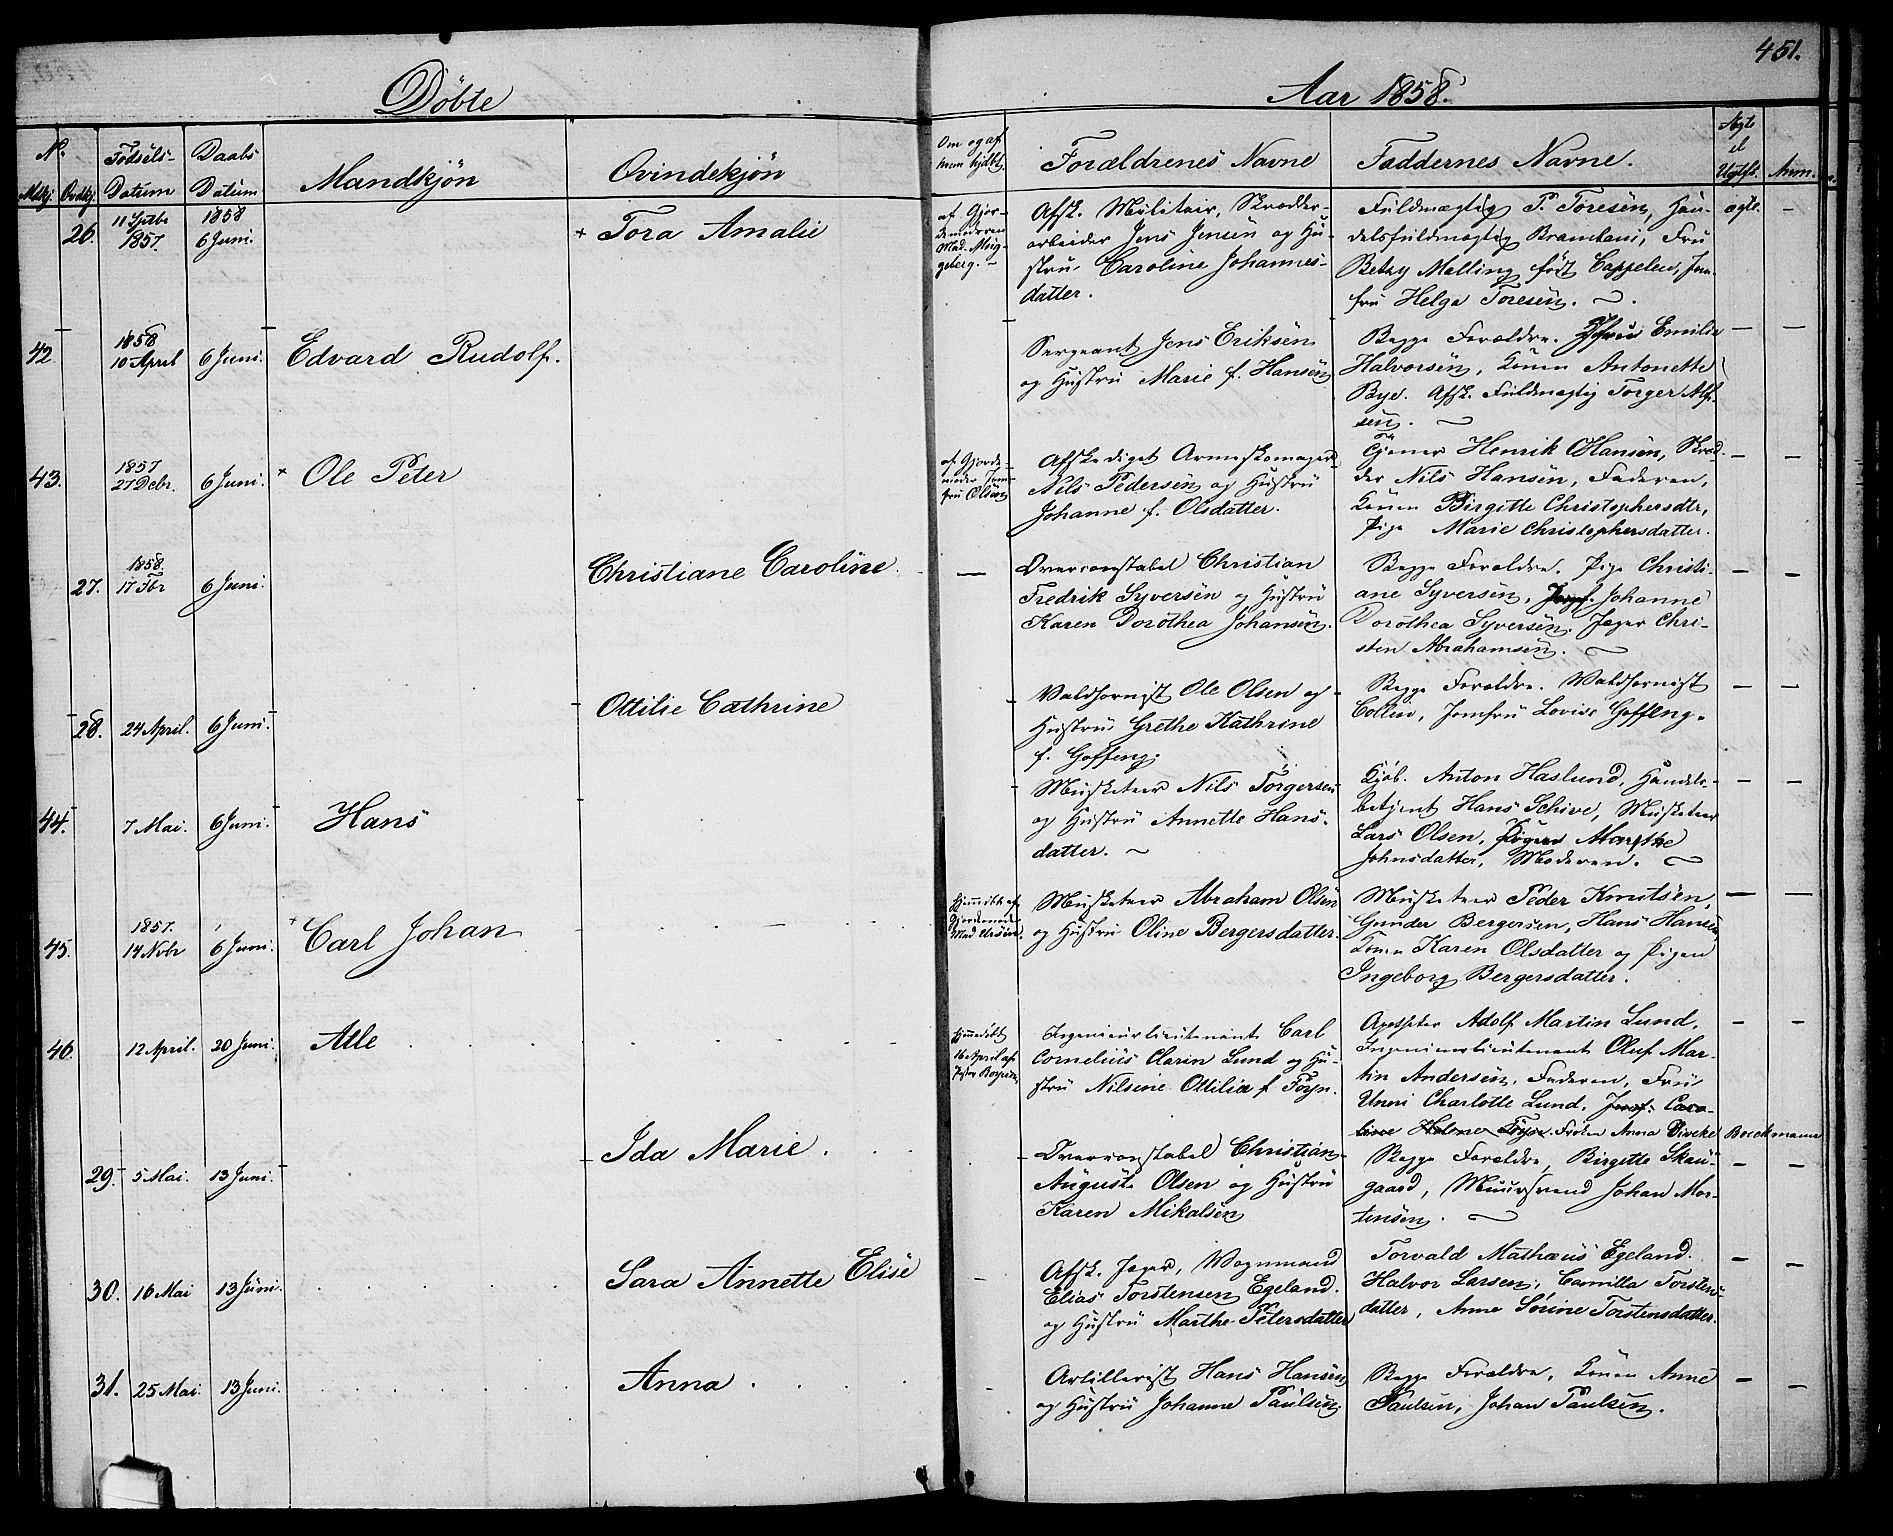 451.
Döbte
Aar 1858.
No.
Mdkj. Qvdkj.
Födsels-
Datum
Daabs
Datum
Mandkjön
Qvindekjön
Om og af
hvem hjdbt.
Forældrenes Navne
Faddernes Navne.
Ægte
el
Uægtf.
Anm.
26.
11 Septbr
1857.
1858
6 Juni.
+ Tora Amalie
af Gjor-
demoderen
Mad. Mög-
geberg. ~
Afsk. Militair, Skrædder-
arbeider Jens Jensen og Hu-
stru Caroline Johannes-
datter.
Fuldmægtig P. Toresen, Han-
delsfuldmægtig Bramhani, Fru
Betzy Melling født Cappelen, Jom-
fru Helga Toresen. ~
ægte. –
42.
1858
10 April
6 Juni.
Edvard Rudolf.
Sergeant Jens Eriksen
og Hustru Marie f. Hansen
Begge Forældre. Emilie
Halvorsen, Konen Antonette
Bye. Afsk. Fuldmægtig Torger Alf-
sen. ~
– –
43.
1857
27 Debr.
6 Juni.
+ Ole Peter
af Gjorde-
moder Jom-
fru Olsen
Afskediget Armeskomager
Nils Pedersen og Hustru
Johanne f. Olsdatter.
Tjener Henrik Hansen, Skræd-
der Nils Hansen, Faderen,
Konen Birgitte Christophersdtr,
Pige Marie Christophersdatter.
– –
27.
1858.
17 Fbr
6 Juni.
Christiane Caroline.
—
Overconstabel Christian
Fredrik Syversen og Hustru
Karen Dorothea Johansen.
Begge Forældre. Pige Christi-
ane Syversen, Jomf. Johanne
Dorothea Syversen. Jæger Chri-
sten Abrahamsen. ~
– –
28.
24 April.
6 Juni.
Ottilie Cathrine
Valdhornist Ole Olsen og
Hustru Grethe Kathrine
f. Goffeng.
Begge Forældre. Waldhornist
Collin, Jomfru Lovise Goffeng.
– –
44.
7 Mai.
6 Juni.
Hans
Musketeer Nils Torgersen
og Hustru Annette Hans-
datter. ~
Kjøb. Anton Haslund, Handels-
betjent Hans Schive, Musketeer
Lars Olsen, Pigen Marthe
Johnsdatter, Moderen. ~
– –
45.
1857.
14 Novbr
6 Juni.
+ Carl Johan
Hjemdöbt af
Gjordemoder
Mad
Musketeer Abraham Olsen
og Hustru Oline Bergersdatter.
Musketeer Peder Knutsen,
Gunder Bergersen, Hans Hansen,
Konen Karen Olsdatter og Pigen
Ingeborg Bergersdatter.
– –
46.
12 April.
20 Juni.
Atle
Hjemmedöbt
16 April af
Ingenieurlieutenant Carl
Cornelius Clarin Lund og Hu-
stru Nilsine Ottilia f. Foyn.
Apotheker Adolf Martin Lund,
Ingenieurlieutenant Oluf Mar-
tin Andersen, Faderen, Fru
Unni Charlotte Lund. Jomf. Caro-
line Helene Foyn. Frøken Anna Diveke Boeckmann
– –
29.
5 Mai.
13 Juni.
Ida Marie.
Overconstabel Christian
August Olsen og Hustru
Karen Mikalsen
Begge Forældre, Birgitte Skau-
gaard, Muursvend Johan Mor-
tensen. ~
– –
30.
16 Mai
13 Juni.
Sara Annette Elise
–
Afsk. Jæger, Vognmand
Elias Torstensen Egeland.
og Hustru Marthe Petersdatter
Torvald Mathæus Egeland.
Halvor Larsen, Camilla Torstens-
datter, Anne Sörine Torstensdatter.
– –
31.
25 Mai.
13 Juni.
Anna.
–
Artillerist Hans Hansen
og Hustru Johanne Paulsen
Begge Forældre, Konen Anne
Paulsen, Johan Paulsen.
– –